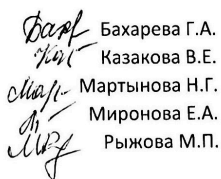 Бахарева Г.А.
Казакова В.Е.
Мартынова Н.Г.
Миронова Е.А.
Рыжова М.П.